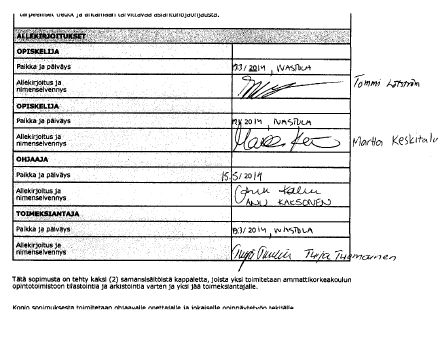 tarpeelliset tiedot ja antamaan tarvittavaa asiantuntijaohjausta.
ALLEKIRJOITUKSET
OPISKELIJA
Paikka ja päiväys
/ 2014,
Allekirjoitus ja
nimenselvennys
Tommi
OPISKELIJA
Paikka ja päiväys
2014,
Allekirjoitus ja
nimenselvennys
Keskitalo
OHJAAJA
Paikka ja päiväys 15.5/2014
Allekirjoitus ja
nimenselvennys
ANU KAKSONEN
TOIMEKSIANTAJA
Paikka ja päiväys
/2014,
Allekirjoitus ja
nimenselvennys
Tuomainen
Tätä sopimusta on tehty kaksi (2) samansisältöistä kappaletta, joista yksi toimitetaan ammattikorkeakoulun
opintotoimistoon tilastointia ja arkistointia varten ja yksi jää toimeksiantajalle.
Kopio sopimuksesta toimitetaan ohjaavalle opettajalle ja jokaiselle opinnäytetyön tekijälle.